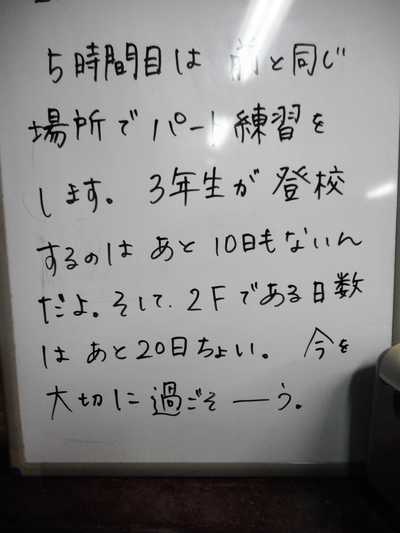 5時間目は 前と同じ
場所でパート練習を
します。 3年生が登校
するのは あと 10日もないん
だよ。そして、2Fである日数
は あと20日ちょい。 今を
大切に過ごそーう。